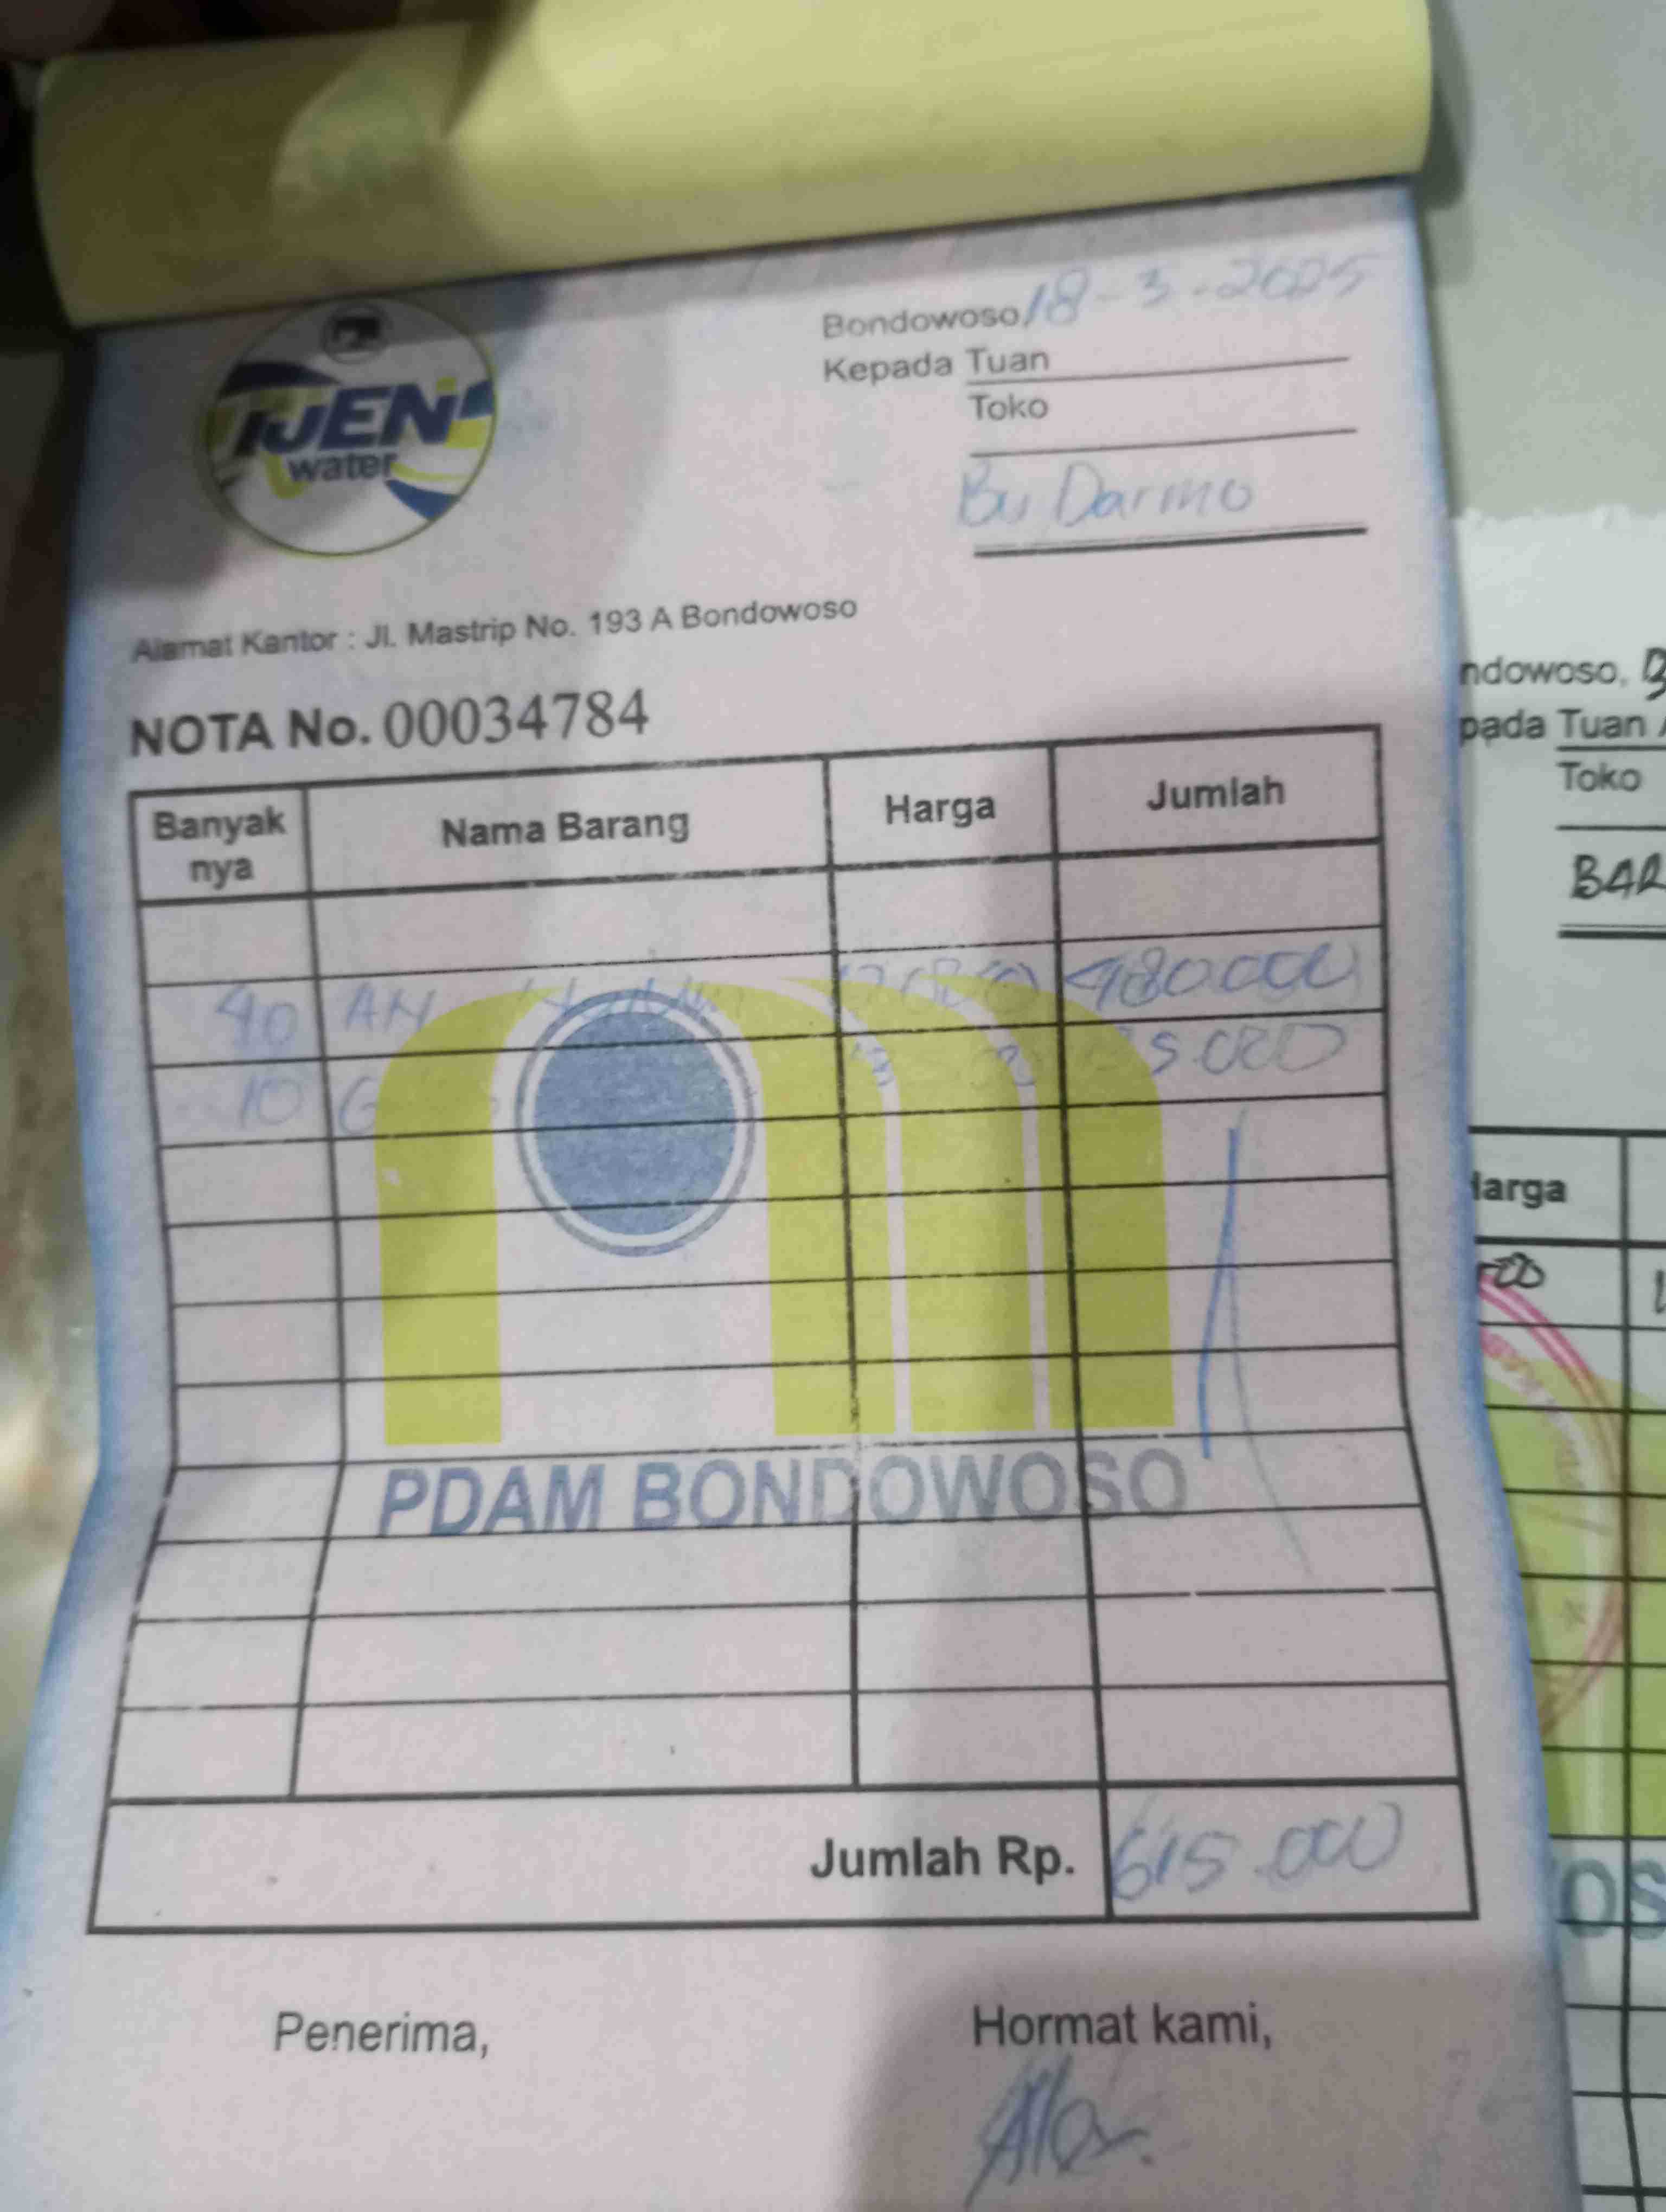 IJEN
water
Bondowoso, 18-3-2025
Kepada Tuan
Toko
Bu Darmo
Alamat Kantor : Jl. Mastrip No. 193 A Bondowoso
NOTA No. 00034784
Banyak nya Nama Barang Harga Jumlah
40 480.000
10 G 5.000
PDAM BONDOWOSO
Jumlah Rp. 615.000
Penerima, Hormat kami,
ndowoso, B
pada Tuan
Toko
BAR
Harga
OS